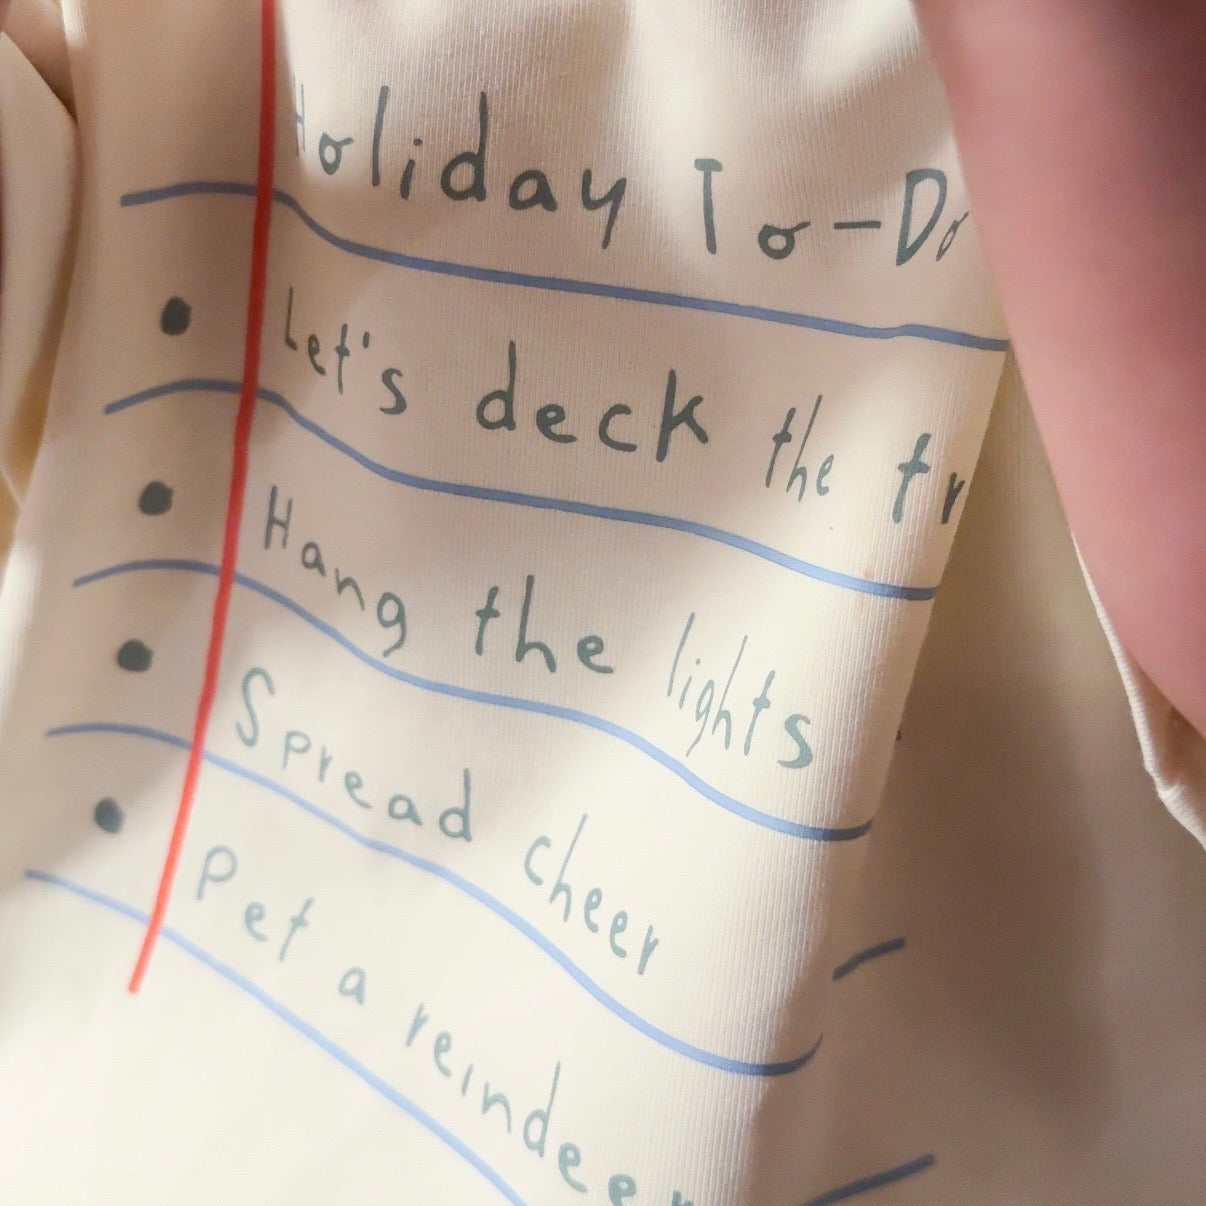 Holiday To-Do
Let's deck the
Hang the lights
Spread cheer
Pet a reindeer